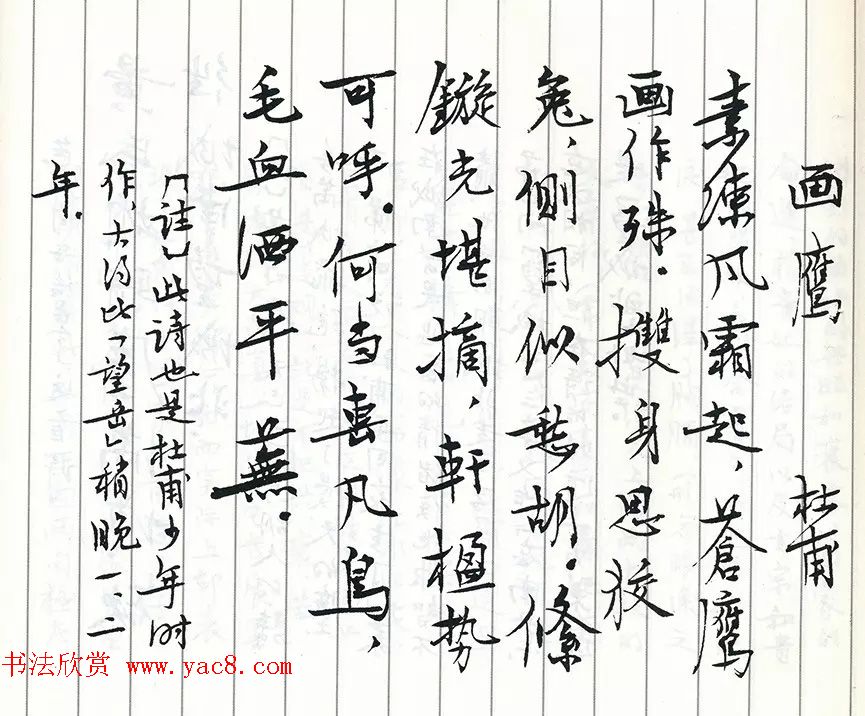 画鹰 杜甫
素练风霜起，苍鹰
画作殊。㩳身思狡
兔，侧目似愁胡。絛
鏇光堪摘，軒楹势
可呼。何当击凡鸟，
毛血洒平蕪。
「註」此诗也是杜甫少年时
作，大约比「望岳」稍晚一、二
年。
书法欣赏 www.yac8.com